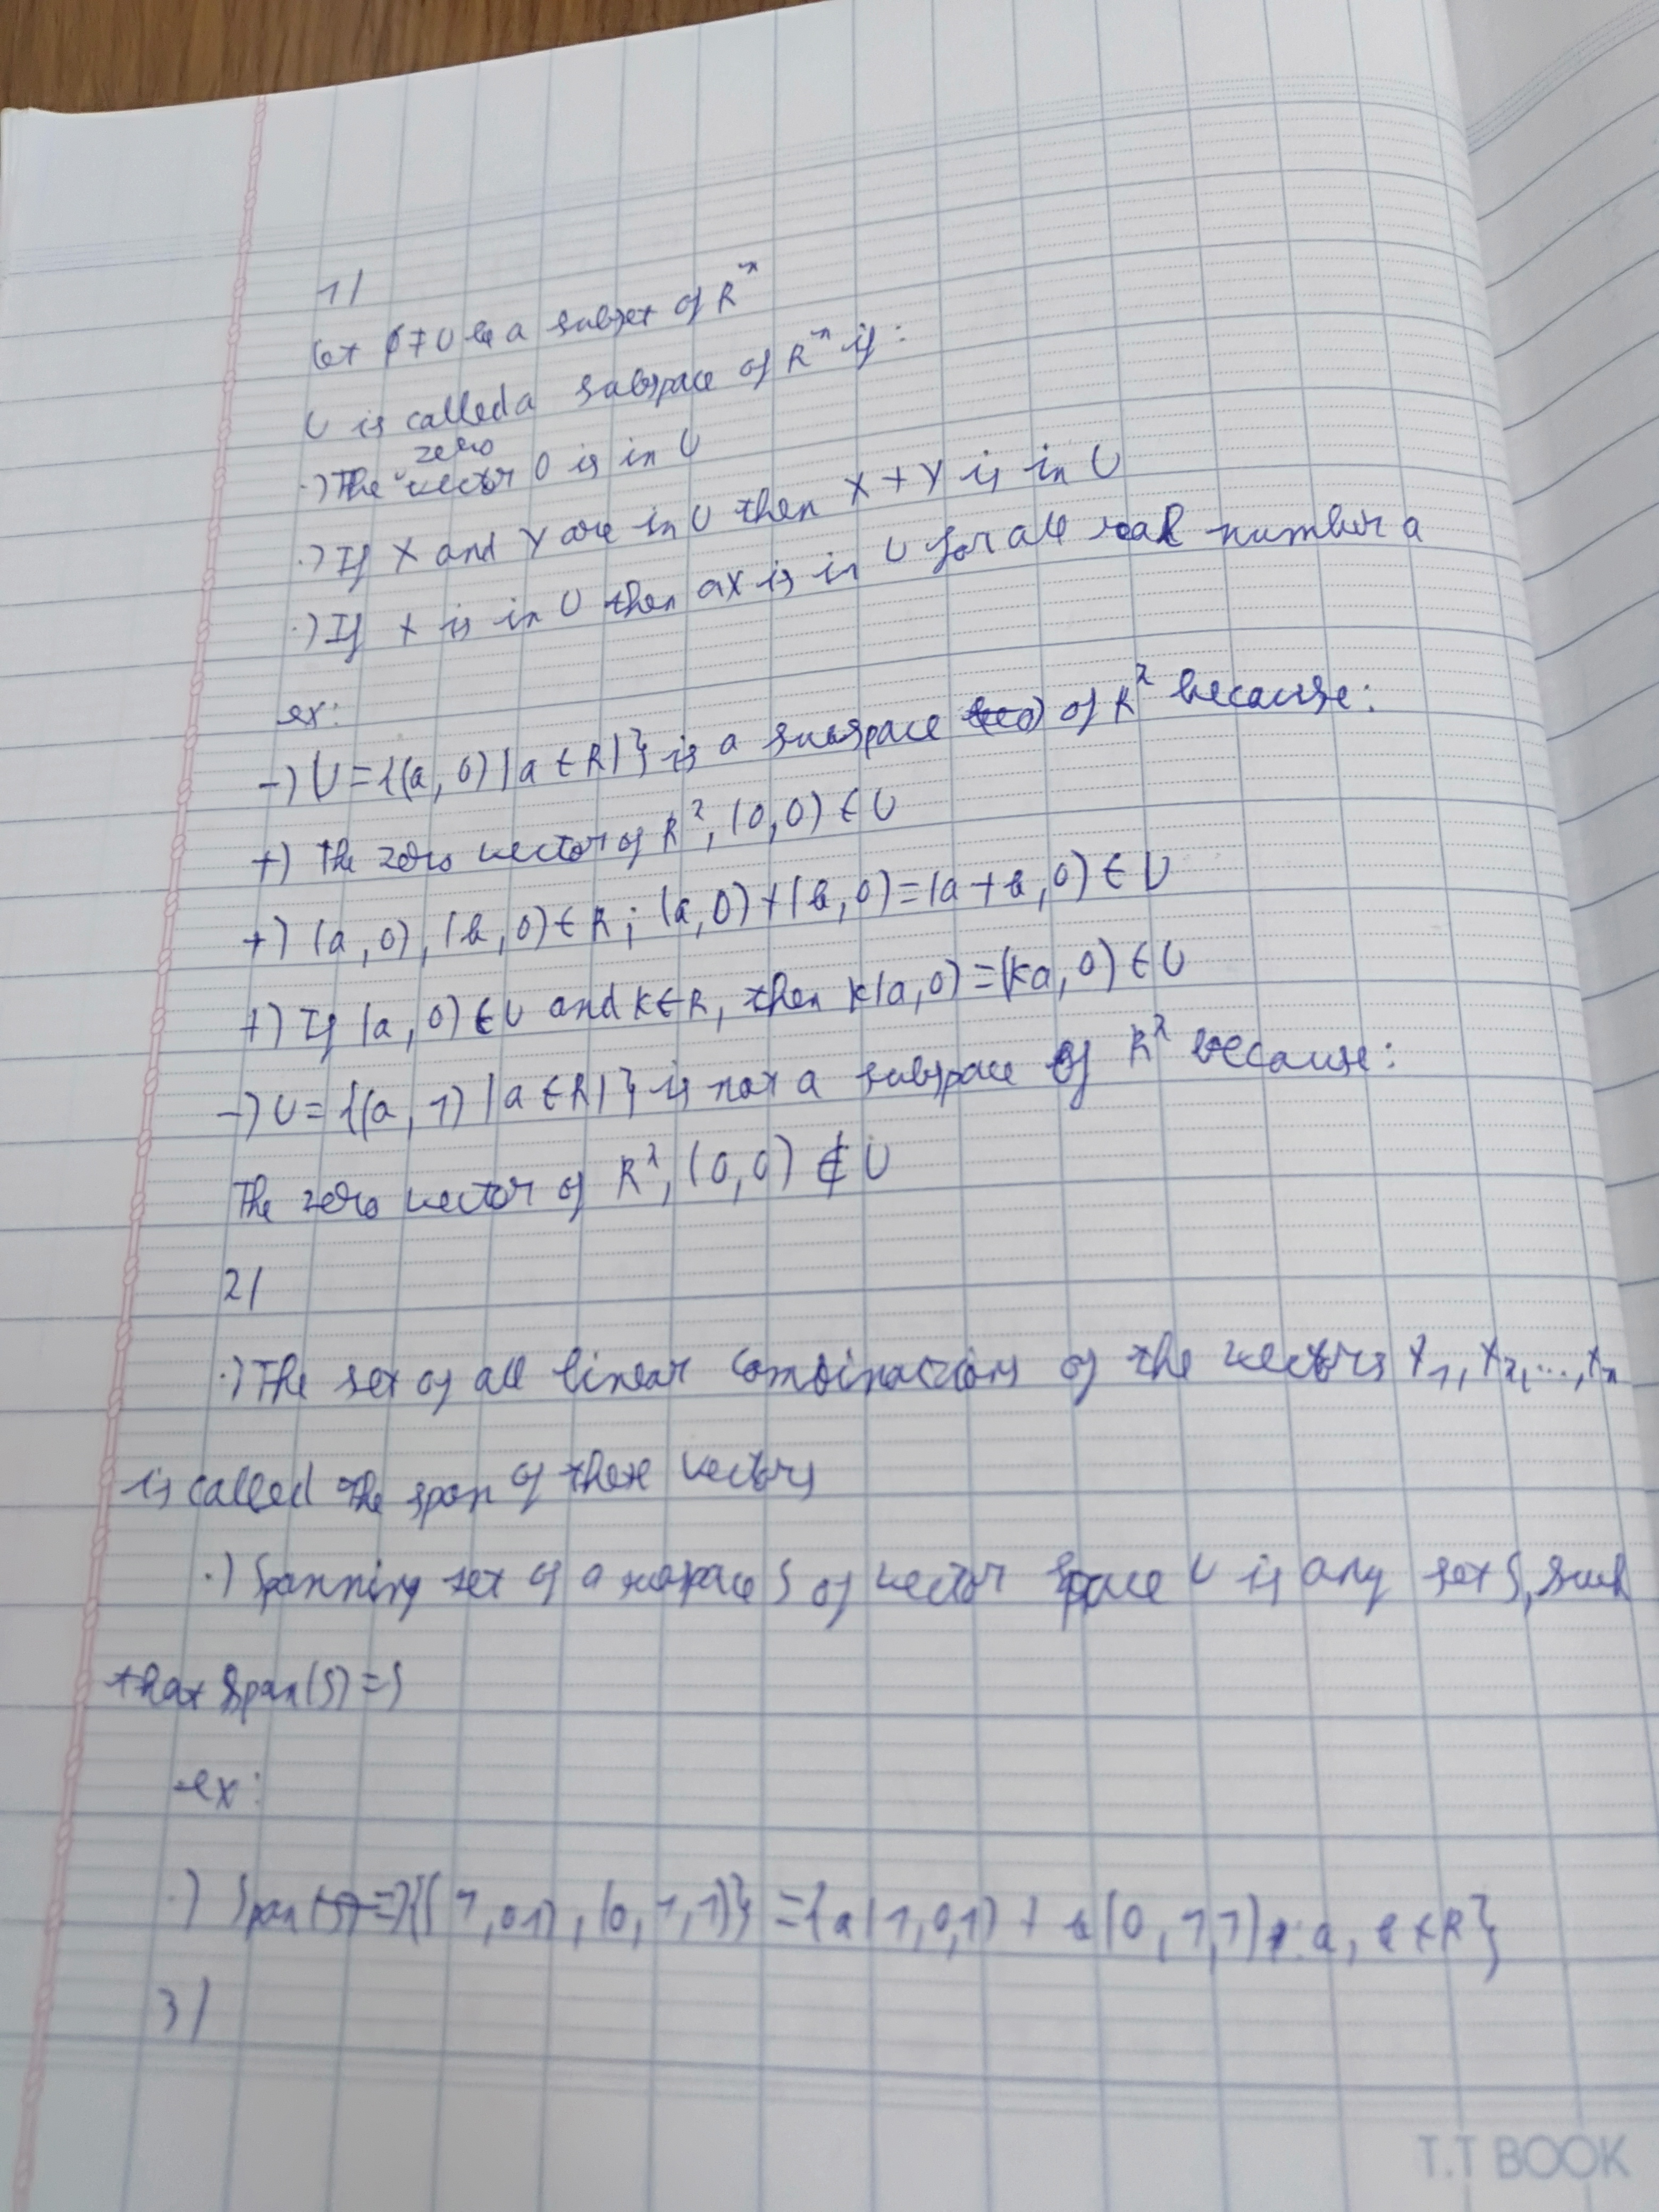 1/
Let ∅≠U be a subset of R^n
U is called a subspace of R^n if:
·) The zero vector 0 is in U
·) If X and Y are in U then X + Y is in U
·) If X is in U then aX is in U for all real number a
ex:
-) U = {(a, 0) | a ∈ R|} is a subspace of R² because:
+) The zero vector of R², (0,0) ∈ U
+) (a, 0), (b, 0) ∈ R; (a, 0) + (b, 0) = (a + b, 0) ∈ U
+) If (a, 0) ∈ U and k ∈ R, then k(a, 0) = (ka, 0) ∈ U
-) U = {(a, 1) | a ∈ R|} is not a subspace of R² because:
The zero vector of R², (0,0) ∉ U
2/
·) The set of all linear combinations of the vectors X₁, X₂, ..., Xn
is called the span of these vectors
·) Spanning set of a subspace S of vector space U is any set S, such
that Span(S) = S
ex:
·) Span {(1, 0 1), (0, 1, 1)} = {a(1, 0, 1) + b(0, 1, 1) : a, b ∈ R}
3/
T.T BOOK